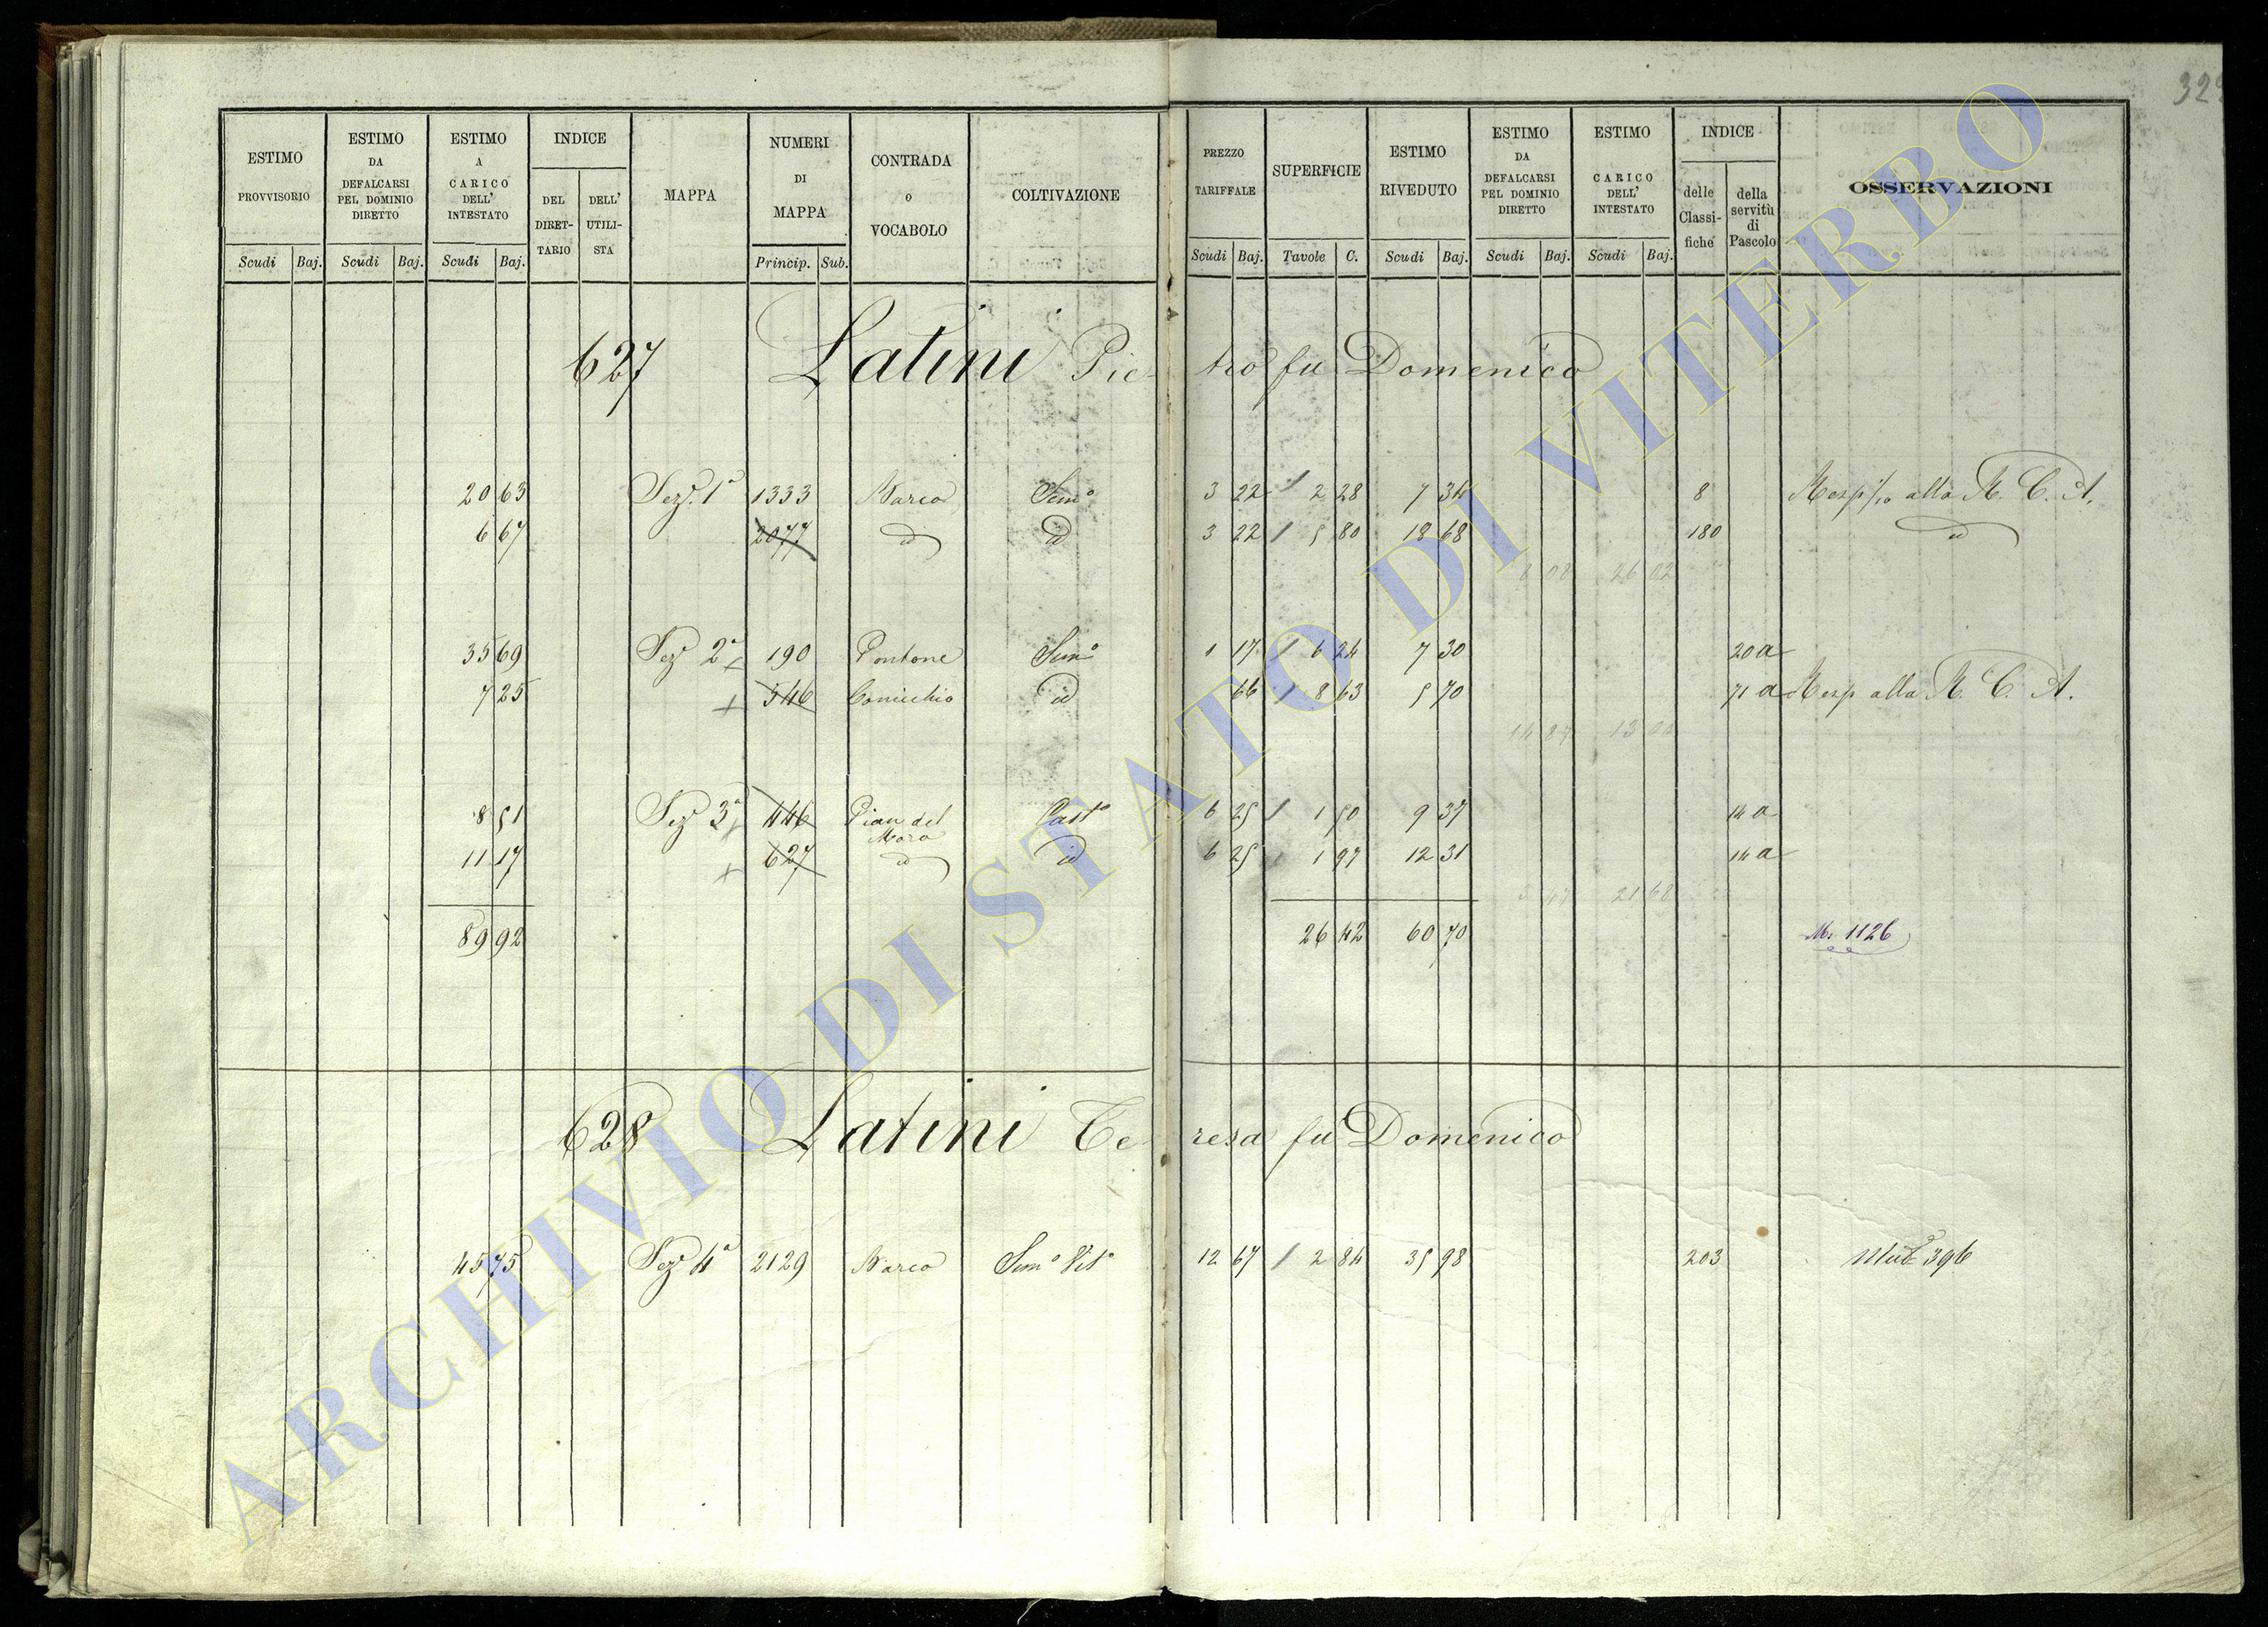 32
ESTIMO PROVVISORIO
ESTIMO DA DEFALCARSI PEL DOMINIO DIRETTO
ESTIMO A CARICO DELL' INTESTATO
INDICE
DEL DIRET-TARIO
DELL' UTILI-STA
MAPPA
NUMERI DI MAPPA
CONTRADA o VOCABOLO
COLTIVAZIONE
PREZZO TARIFFALE
SUPERFICIE
ESTIMO RIVEDUTO
ESTIMO DA DEFALCARSI PEL DOMINIO DIRETTO
ESTIMO A CARICO DELL' INTESTATO
INDICE
delle Classi-fiche
della servitù di Pascolo
OSSERVAZIONI
Scudi Baj. Scudi Baj. Scudi Baj. Princip. Sub. Scudi Baj. Tavole C. Scudi Baj. Scudi Baj. Scudi Baj.
627 Latini Pietro fu Domenico
20 63 Sez. 1ª 1333 Marco Sem° 3 22 / 2 28 7 34 8 alla R. C. A.
6 67 2077 id id 3 22 / 5 80 18 68 180 id
8 08 26 02
35 69 Sez 2ª 190 Pontone Sem° 1 17 / 6 24 7 30 20 a
7 25 546 Cornicchio id 66 / 8 63 5 70 71 a Resp alla R. C. A.
13 00
8 51 Sez 3ª 446 Pian del Moro Past° 6 25 / 1 50 9 37 14 a
11 17 627 id id 6 25 / 1 97 12 31 14 a
21 68
89 92 26 42 60 70 M. 1126
628 Latini Teresa fu Domenico
45 75 Sez 4ª 2129 Marco Sem° Vit° 12 67 / 2 84 35 98 203 Mut 396
ARCHIVIO DI STATO DI VITERBO